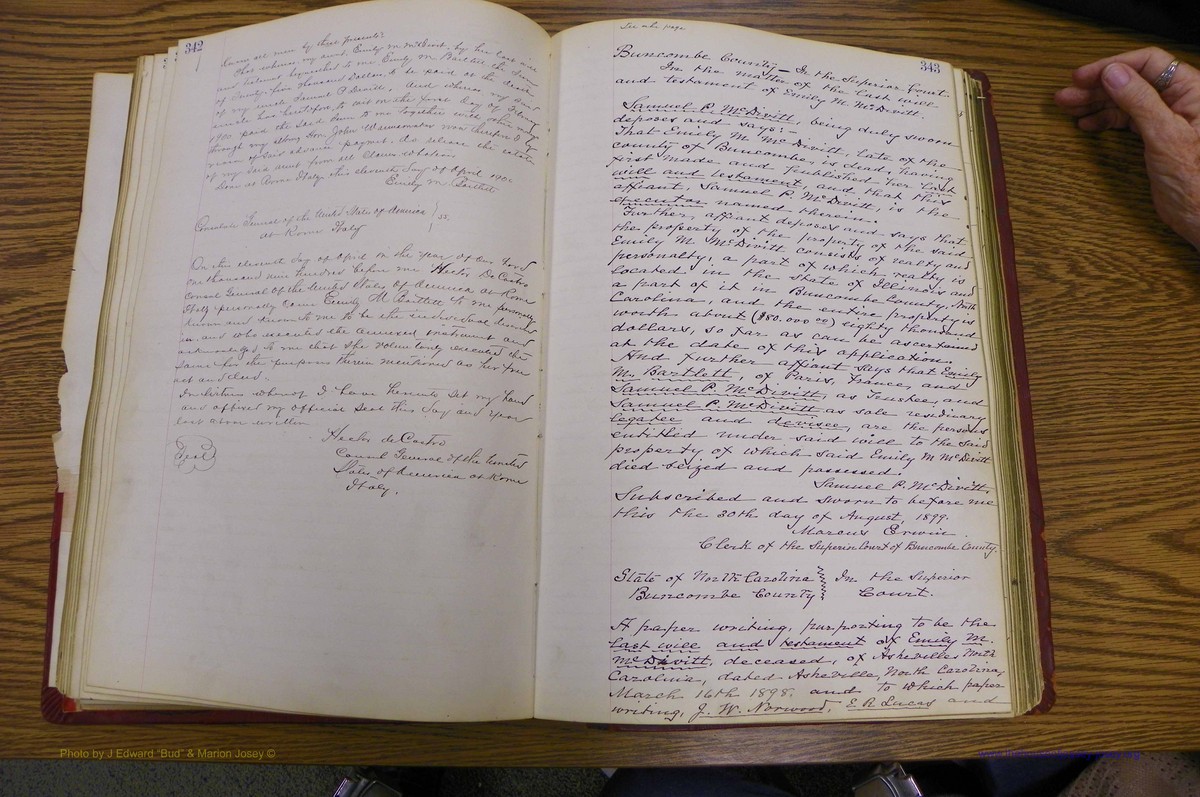 342
Know all men by these Presents:
That whereas my aunt Emily M. McDivitt by her last will
and testament bequeathed to me Emily M. Bartlett the sum
of Twenty-five Thousand Dollars, to be paid at the death
of my uncle Samuel P. McDivitt. And whereas my said
uncle has heretofore to wit on the first day of
1900 paid the said sum to me together with
through my attorney Hon. John Wanamaker now therefore I by
reason of said advance payment do release the estate
of my said aunt from all claim whatever.
Done at Rome Italy this eleventh day of April 1900
Emily M. Bartlett
Consulate General of the United States of America } ss.
at Rome Italy
On this eleventh day of April in the year of our Lord
one thousand nine hundred before me Hector De Castro
Consul General of the United States of America at Rome
Italy personally came Emily M. Bartlett to me personally
known and known to me to be the individual described
in and who executed the annexed instrument and
acknowledged to me that she voluntarily executed the
same for the purposes therein mentioned as her free
act and deed.
In witness whereof I have hereunto set my hand
and affixed my official seal this day and year
last above written
Seal
Hector de Castro
Consul General of the United
States of America at Rome
Italy.
See  page
343
Buncombe County — In the Superior Court
In the matter of the last will
and testament of Emily M. McDivitt.
Samuel P. McDivitt, being duly sworn
deposes and says:-
That Emily M. McDivitt, late of the
county of Buncombe, is dead, having
first made and published her last
will and testament, and that this
affiant, Samuel P. McDivitt, is the
executor named therein.
Further, affiant deposes and says that
the property of the property of the said
Emily M. McDivitt consists of realty and
personalty, a part of which realty is
located in the State of Illinois and
a part of it in Buncombe County, North
Carolina, and the entire property is
worth about ($80.000 00) eighty thousand
dollars, so far as can be ascertained
at the date of this application.
And further affiant says that Emily
M. Bartlett, of Paris, France, and
Samuel P. McDivitt, as Trustee, and
Samuel P. McDivitt as sole residuary
legatee and devisee, are the persons
entitled under said will to the said
property of which said Emily M McDivitt
died seized and possessed.
Samuel P. McDivitt,
Subscribed and sworn to before me
this the 30th day of August, 1899.
Marcus Erwin.
Clerk of the Superior Court of Buncombe County.
State of North Carolina } In the Superior
Buncombe County } Court.
A paper writing, purporting to be the
last will and testament of Emily M.
McDivitt, deceased, of Asheville North
Carolina, dated Asheville, North Carolina,
March 16th 1898. and to which paper
writing, J. W. Norwood, E. R. Lucas and
Photo by J Edward "Bud" & Marion Josey ©